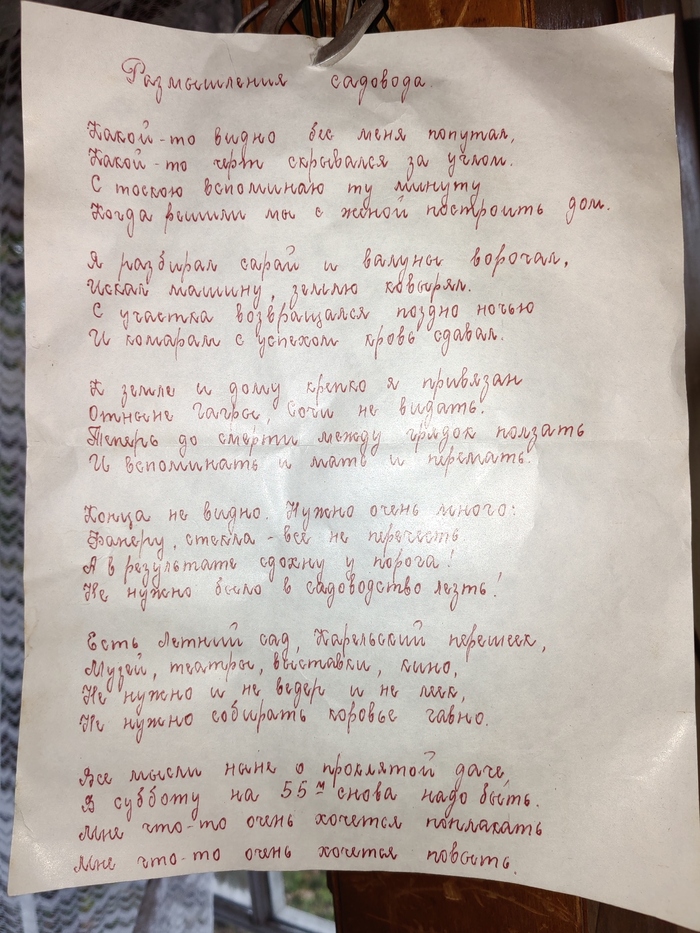 Размышления садовода.
Какой-то видно бес меня попутал,
Какой-то черт скрывался за углом.
С тоскою вспоминаю ту минуту
Когда решили мы с женой построить дом.
Я разбирал сарай и валуны ворочал,
Искал машину, землю ковырял.
С участка возвращался поздно ночью
И комарам с успехом кровь сдавал.
К земле и дому крепко я привязан
Отныне Гагры, Сочи не видать.
Теперь до смерти между грядок ползать
И вспоминать и мать и перемать.
Конца не видно. Нужно очень много:
Фанеру, стекла - все не перечесть.
А в результате сдохну у порога!
Не нужно было в садоводство лезть!
Есть Летний сад, Карельский перешеек,
Музей, театры, выставки, кино,
Не нужно и не ведер и не леек,
Не нужно собирать коровье гавно.
Все мысли ныне о проклятой даче,
В субботу на 55м снова надо быть.
Мне что-то очень хочется поплакать
Мне что-то очень хочется повыть.